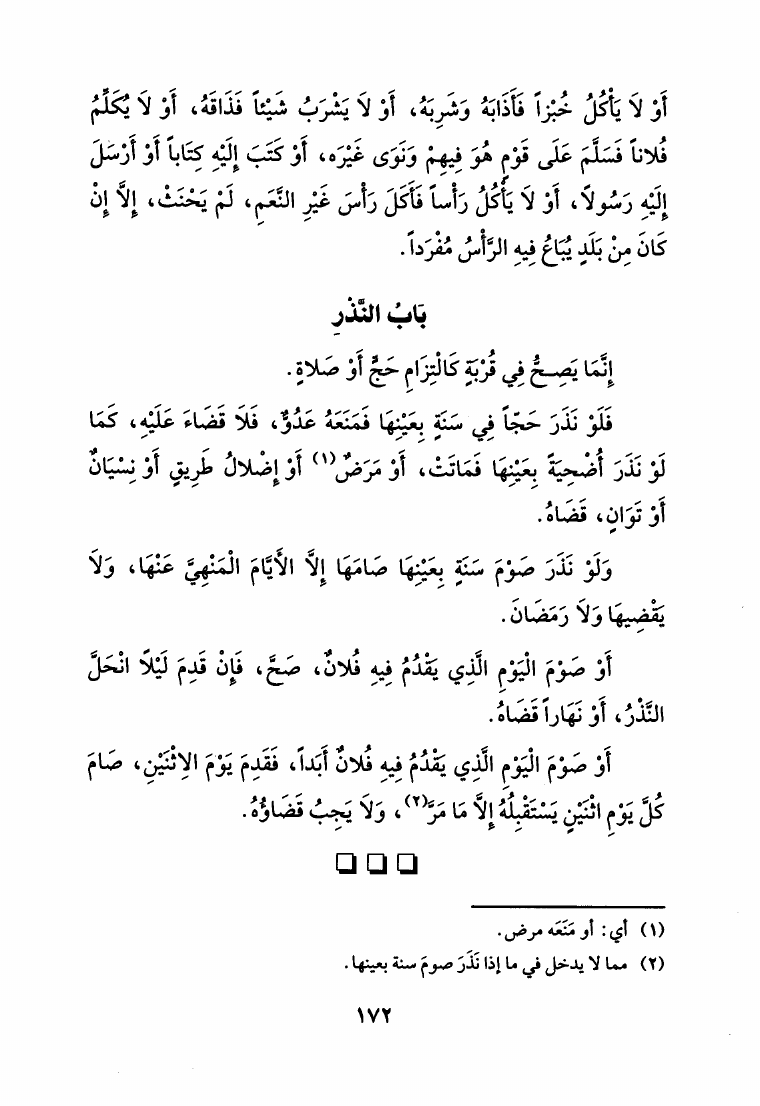 أَوْ لاَ يَأْكُلُ خُبْزاً فَأَذَابَهُ وَشَرِبَهُ، أَوْ لاَ يَشْرَبُ شَيْئاً فَذَاقَهُ، أَوْ لاَ يُكَلِّمُ
فُلاناً فَسَلَّمَ عَلَى قَوْمٍ هُوَ فِيهِمْ وَنَوَى غَيْرَه، أَوْ كَتَبَ إِلَيْهِ كِتَاباً أَوْ أَرْسَلَ
إِلَيْهِ رَسُولاً، أَوْ لاَ يَأْكُلُ رَأْساً فَأَكَلَ رَأْسَ غَيْرِ النَّعَمِ، لَمْ يَحْنَثْ، إِلاَّ إِنْ
كَانَ مِنْ بَلَدٍ يُبَاعُ فِيهِ الرَّأْسُ مُفْرَداً.
بَابُ النَّذْرِ
إِنَّمَا يَصِحُّ فِي قُرْبَةٍ كَالْتِزَامِ حَجٍّ أَوْ صَلاَةٍ.
فَلَوْ نَذَرَ حَجّاً فِي سَنَةٍ بِعَيْنِهَا فَمَنَعَهُ عَدُوٌّ، فَلاَ قَضَاءَ عَلَيْهِ، كَمَا
لَوْ نَذَرَ أُضْحِيَةً بِعَيْنِهَا فَمَاتَتْ، أَوْ مَرَضٌ(١) أَوْ إِضْلالُ طَرِيقٍ أَوْ نِسْيَانٌ
أَوْ تَوَانٍ، قَضَاهُ.
وَلَوْ نَذَرَ صَوْمَ سَنَةٍ بِعَيْنِهَا صَامَهَا إِلاَّ الأَيَّامَ الْمَنْهِيَّ عَنْهَا، وَلاَ
يَقْضِيهَا وَلاَ رَمَضَانَ.
أَوْ صَوْمَ الْيَوْمِ الَّذِي يَقْدُمُ فِيهِ فُلانٌ، صَحَّ، فَإِنْ قَدِمَ لَيْلاً انْحَلَّ
النَّذْرُ، أَوْ نَهَاراً قَضَاهُ.
أَوْ صَوْمَ الْيَوْمِ الَّذِي يَقْدُمُ فِيهِ فُلانٌ أَبَداً، فَقَدِمَ يَوْمَ الاِثْنَيْنِ، صَامَ
كُلَّ يَوْمِ اثْنَيْنٍ يَسْتَقْبِلُهُ إِلاَّ مَا مَرَّ(٢)، وَلاَ يَجِبُ قَضَاؤُهُ.
(١) أي: أو مَنَعَه مرض.
(٢) مما لا يدخل في ما إذا نَذَرَ صومَ سنة بعينها.
١٧٢